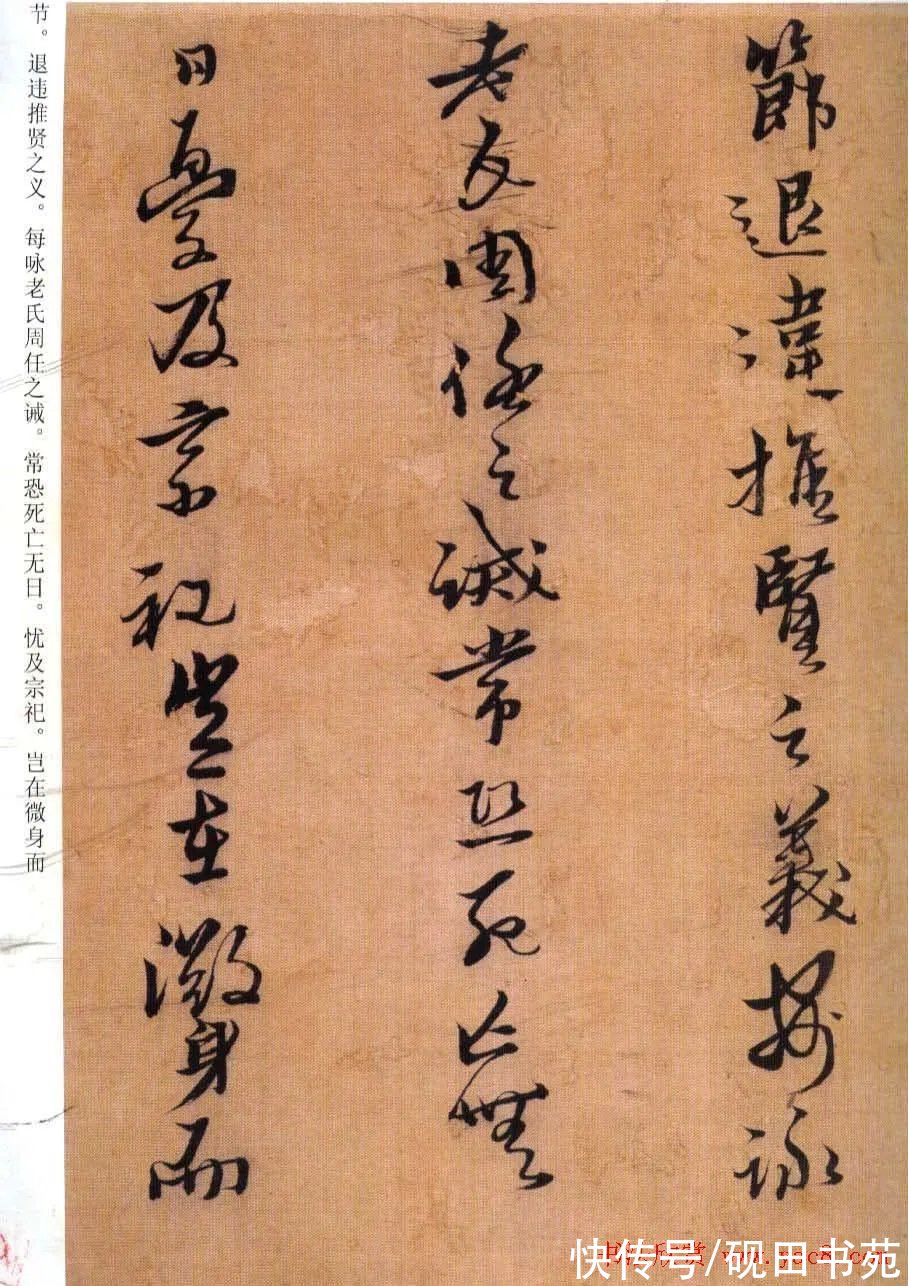 節退違推賢之義每詠
老氏周任之誡常恐死亡無
日憂及宗祀豈在微身而
节。退违推贤之义。每咏老氏周任之诫。常恐死亡无日。忧及宗祀。岂在微身而
快传号/砚田书苑